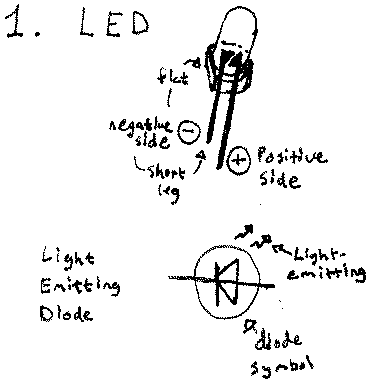 1. LED
flat
negative
side
-
short
leg
+
Positive
side
Light
Emitting
Diode
Light-
emitting
diode
symbol